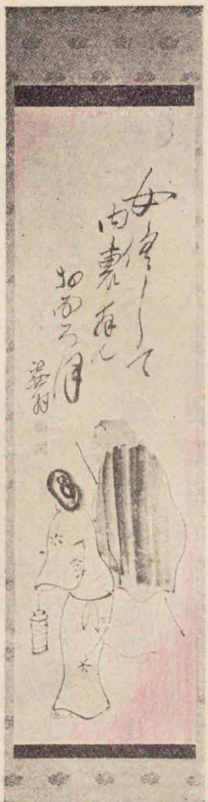 女倶して
内裏拝ん
おほろ月
蕪村